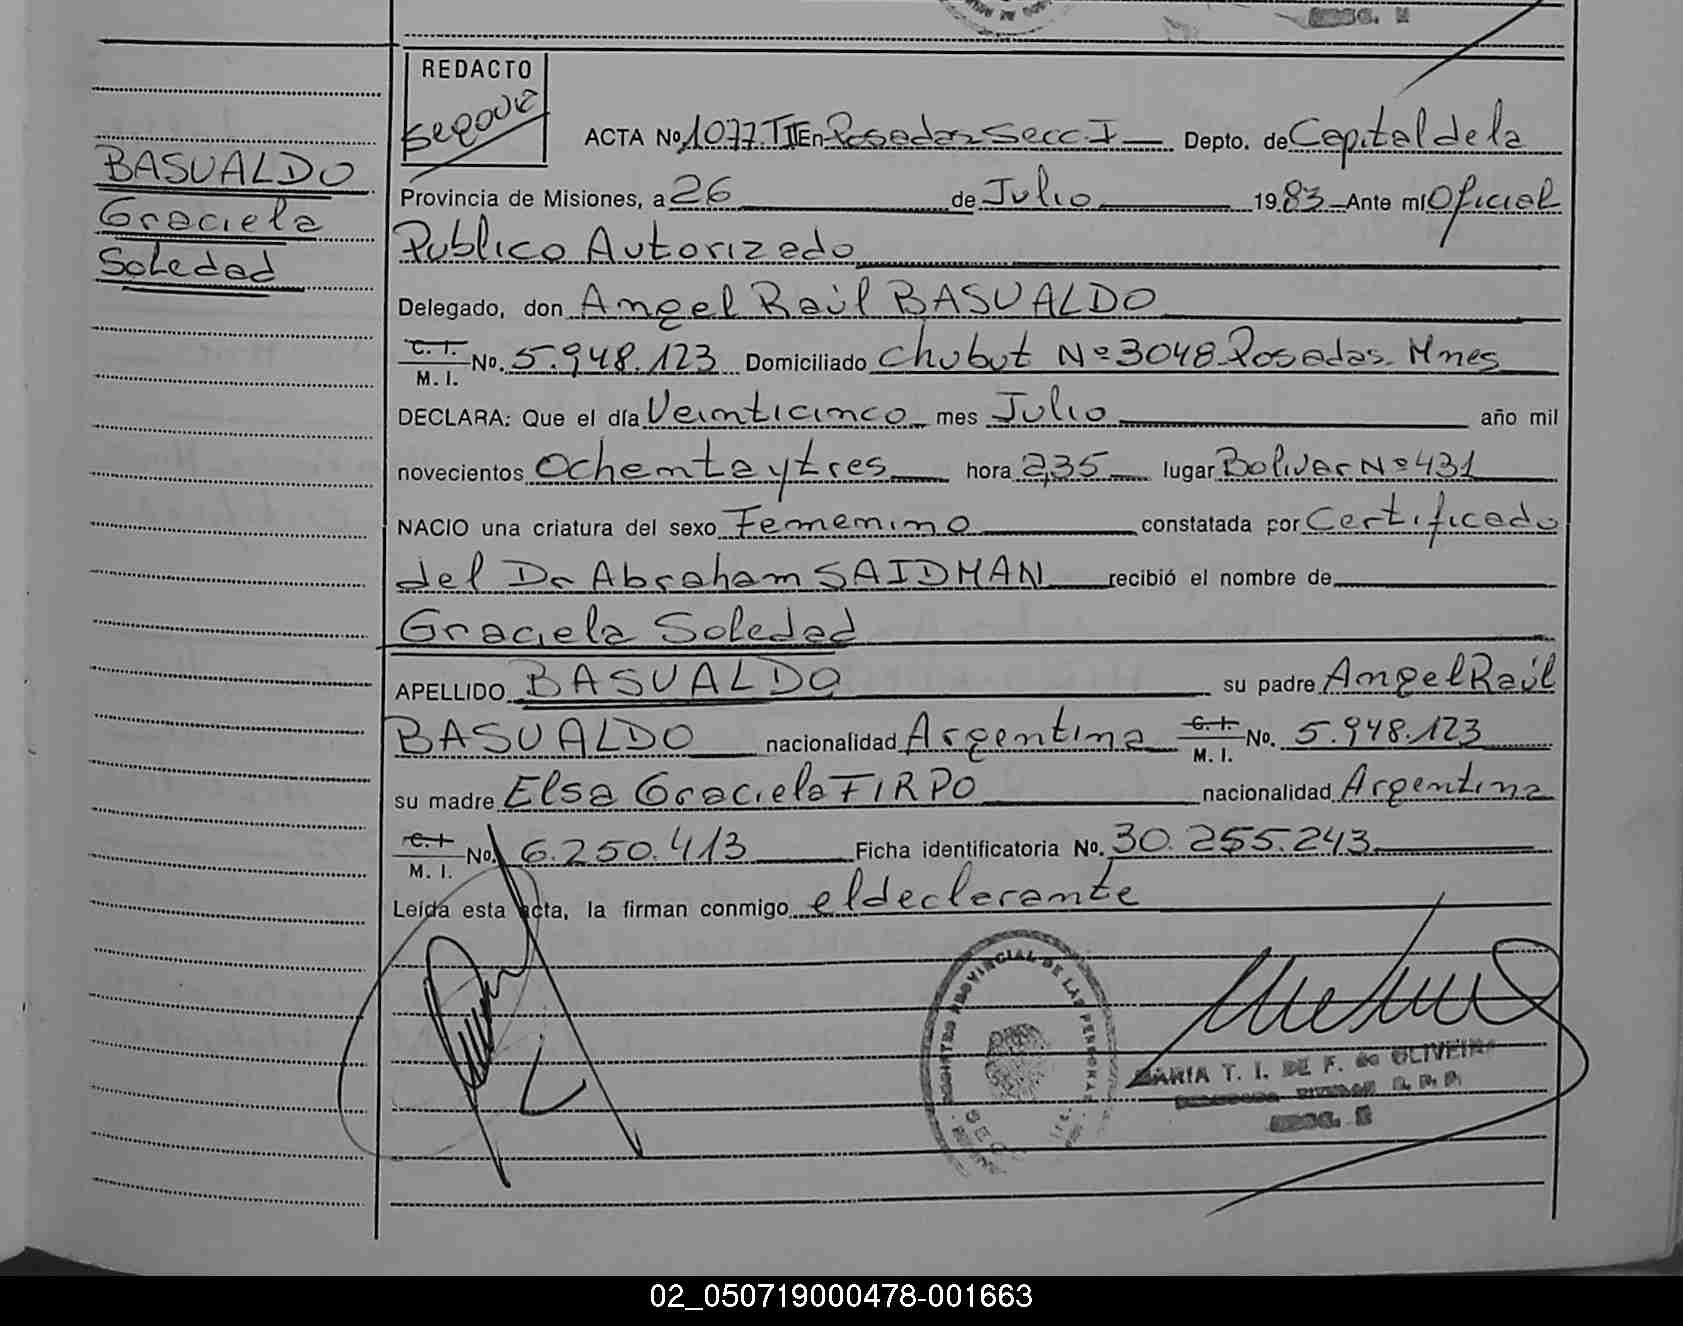 SECC. E
REDACTO
ACTA No. 1077. T II En Posadas Secc I Depto. de Capital de la
BASUALDO
Graciela
Soledad
Provincia de Misiones, a 26 de Julio 1983 Ante mí Oficial
Publico Autorizado
Delegado, don Angel Raúl BASUALDO
C. I. M. I. No. 5.948.123 Domiciliado Chubut Nº 3048 Posadas Mnes
DECLARA: Que el día Veinticinco mes Julio año mil
novecientos Ochenta y tres hora 2,35 lugar Bolivar Nº 431
NACIO una criatura del sexo Femenino constatada por Certificado
del Dr Abraham SAIDMAN recibió el nombre de
Graciela Soledad
APELLIDO BASUALDO su padre Angel Raúl
BASUALDO nacionalidad Argentina C. I. M. I. No. 5.948.123
su madre Elsa Graciela FIRPO nacionalidad Argentina
C. I. M. I. No. 6.250.413 Ficha identificatoria No. 30.255.243
Leída esta acta, la firman conmigo el declarante
REGISTRO PROVINCIAL DE LAS PERSONAS
MARIA T. I. DE F. de OLIVEIRA
SECC. E
02_050719000478-001663